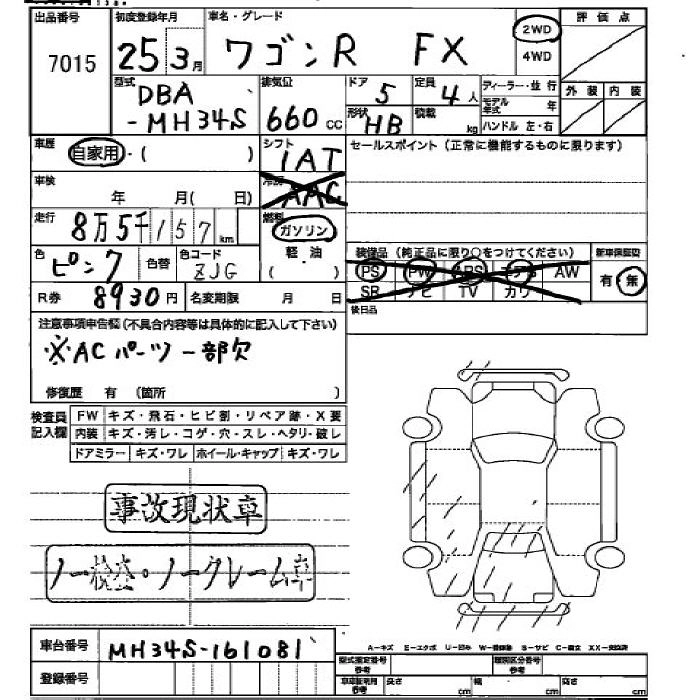 出品番号 7015
初度登録年月 25 3月
車名・グレード ワゴンR FX
2WD 4WD
評価点
外装 内装
型式 DBA -MH34S
排気公 660 cc
ドア 5
定員 4人
形状 HB
積載 kg
ディーラー・並行
モデル年式 年
ハンドル 左・右
車歴 自家用・( )
シフト IAT
冷房 AAC
セールスポイント(正常に機能するものに限ります)
車検 年 月( 日)
走行 8万5千157km
燃料 ガソリン 軽・油 ( )
色 ピンク 色替 色コード ZJG
R券 8930円 名変期限 月 日
装備品(純正品に限り○をつけてください) 新車保証書
PS PW ABS エアB AW
SR ナビ TV カワ
有・無
後日品
注意事項申告欄(不具合内容等は具体的に記入して下さい)
※ACパーツ一部欠
修復歴 有 (箇所 )
検査員記入欄
FW キズ・飛石・ヒビ割・リペア跡・X要
内装 キズ・汚レ・コゲ・穴・スレ・ヘタリ・破レ
ドアミラー キズ・ワレ ホイール・キャップ キズ・ワレ
事故現状車
ノー検査・ノークレーム車
車台番号 MH34S-161081
登録番号
A-キズ E-エクボ U-凹み S-サビ C-腐食 XX-交換済
型式指定番号参考 類別区分番号参考
車庫証明用参考 長さ cm 幅 cm 高さ cm